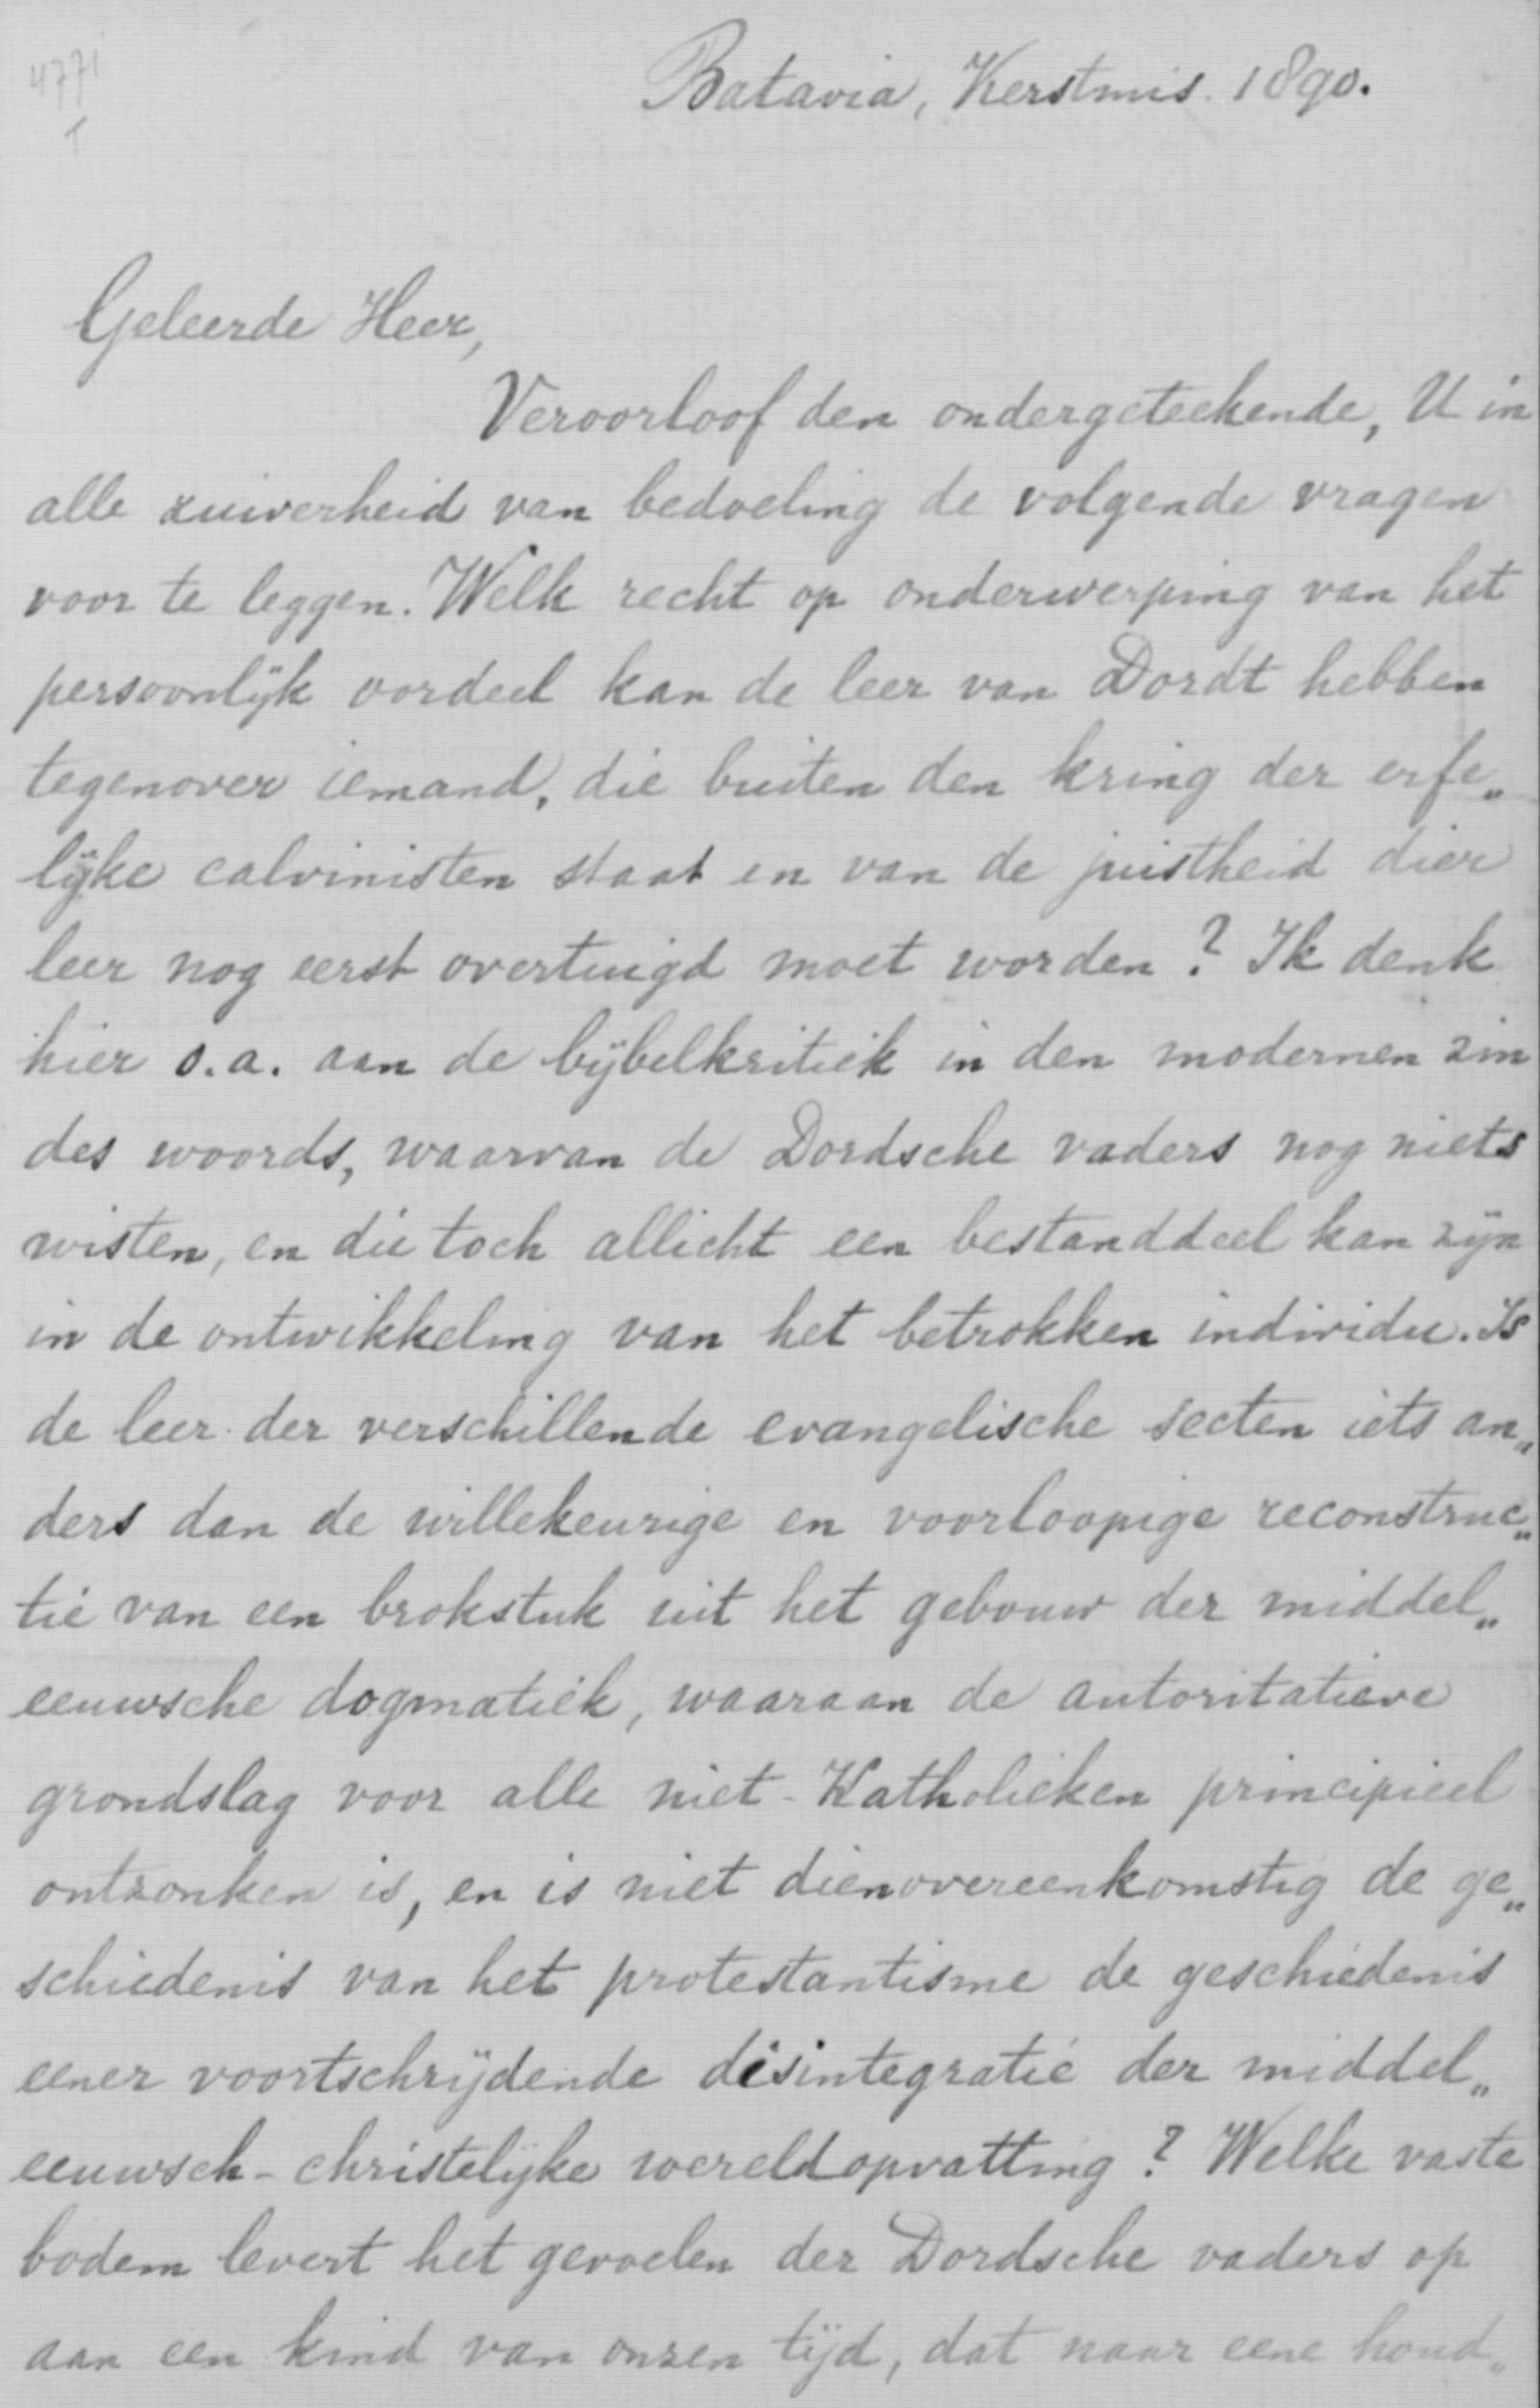 4771
Batavia, Kerstmis. 1890.
Geleerde Heer,
Veroorloof den ondergeteekende, U in
alle zuiverheid van bedoeling de volgende vragen
voor te leggen. Welk recht op onderwerping van het
persoonlijk oordeel kan de leer van Dordt hebben
tegenover iemand, die buiten den kring der erfe„
lijke calvinisten staat en van de juistheid dier
leer nog eerst overtuigd moet worden? Ik denk
hier o.a. aan de bijbelkritiek in den modernen zin
des woords, waarvan de Dordsche vaders nog niets
wisten, en die toch allicht een bestanddeel kan zijn
in de ontwikkeling van het betrokken individu. Is
de leer der verschillende evangelische secten iets an„
ders dan de willekeurige en voorloopige reconstruc„
tie van een brokstuk uit het gebouw der middel„
eeuwsche dogmatiek, waaraan de autoritatieve
grondslag voor alle niet-Katholieken principieel
ontzonken is, en is niet dienovereenkomstig de ge„
schiedenis van het protestantisme de geschiedenis
eener voortschrijdende disintegratie der middel„
eeuwsch-christelijke wereldopvatting? Welke vaste
bodem levert het gevoelen der Dordsche vaders op
aan een kind van onzen tijd, dat naar eene houd„